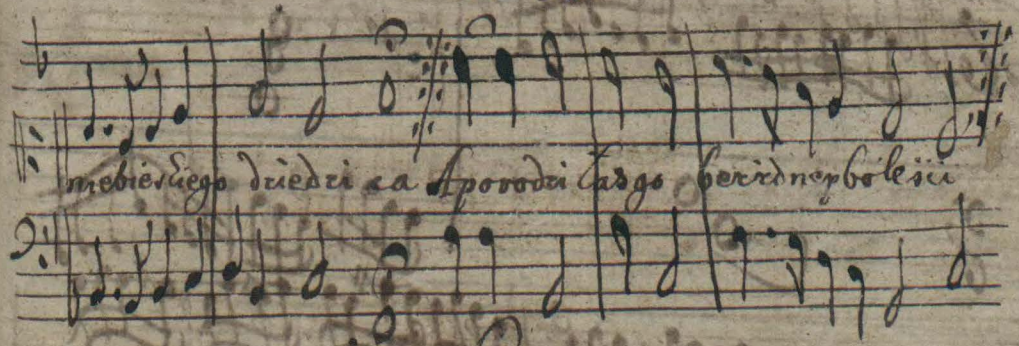 niebieskiego dziedzica Aporodziłasgo bezżadneyboleści